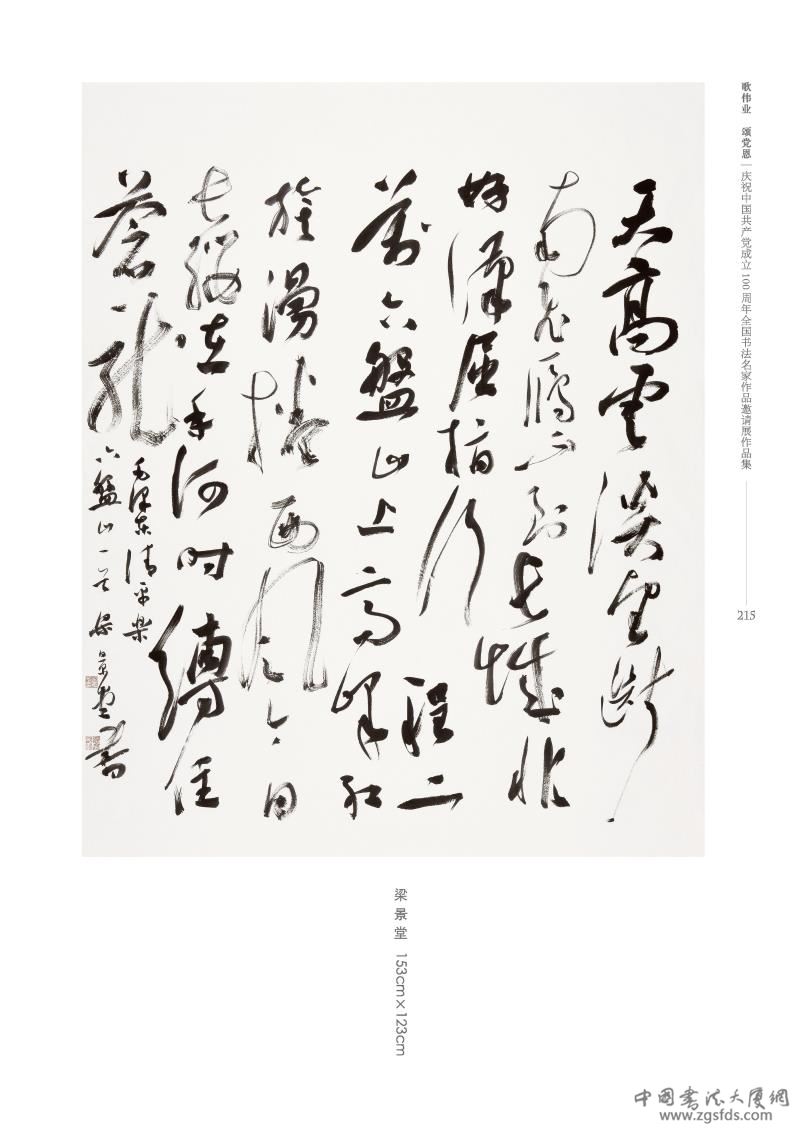 歌伟业 颂党恩 | 庆祝中国共产党成立100周年全国书法名家作品邀请展作品集
215
天高雲淡望斷
南飛雁不到長城非
好漢屈指行程二
萬六盤山上高峰紅
旗漫捲西風今日
長纓在手何时縛住
蒼龍
毛澤東清平樂
六盤山一首 梁景堂書
梁景堂 153cm×123cm
中国书法大厦網
www.zgsfds.com